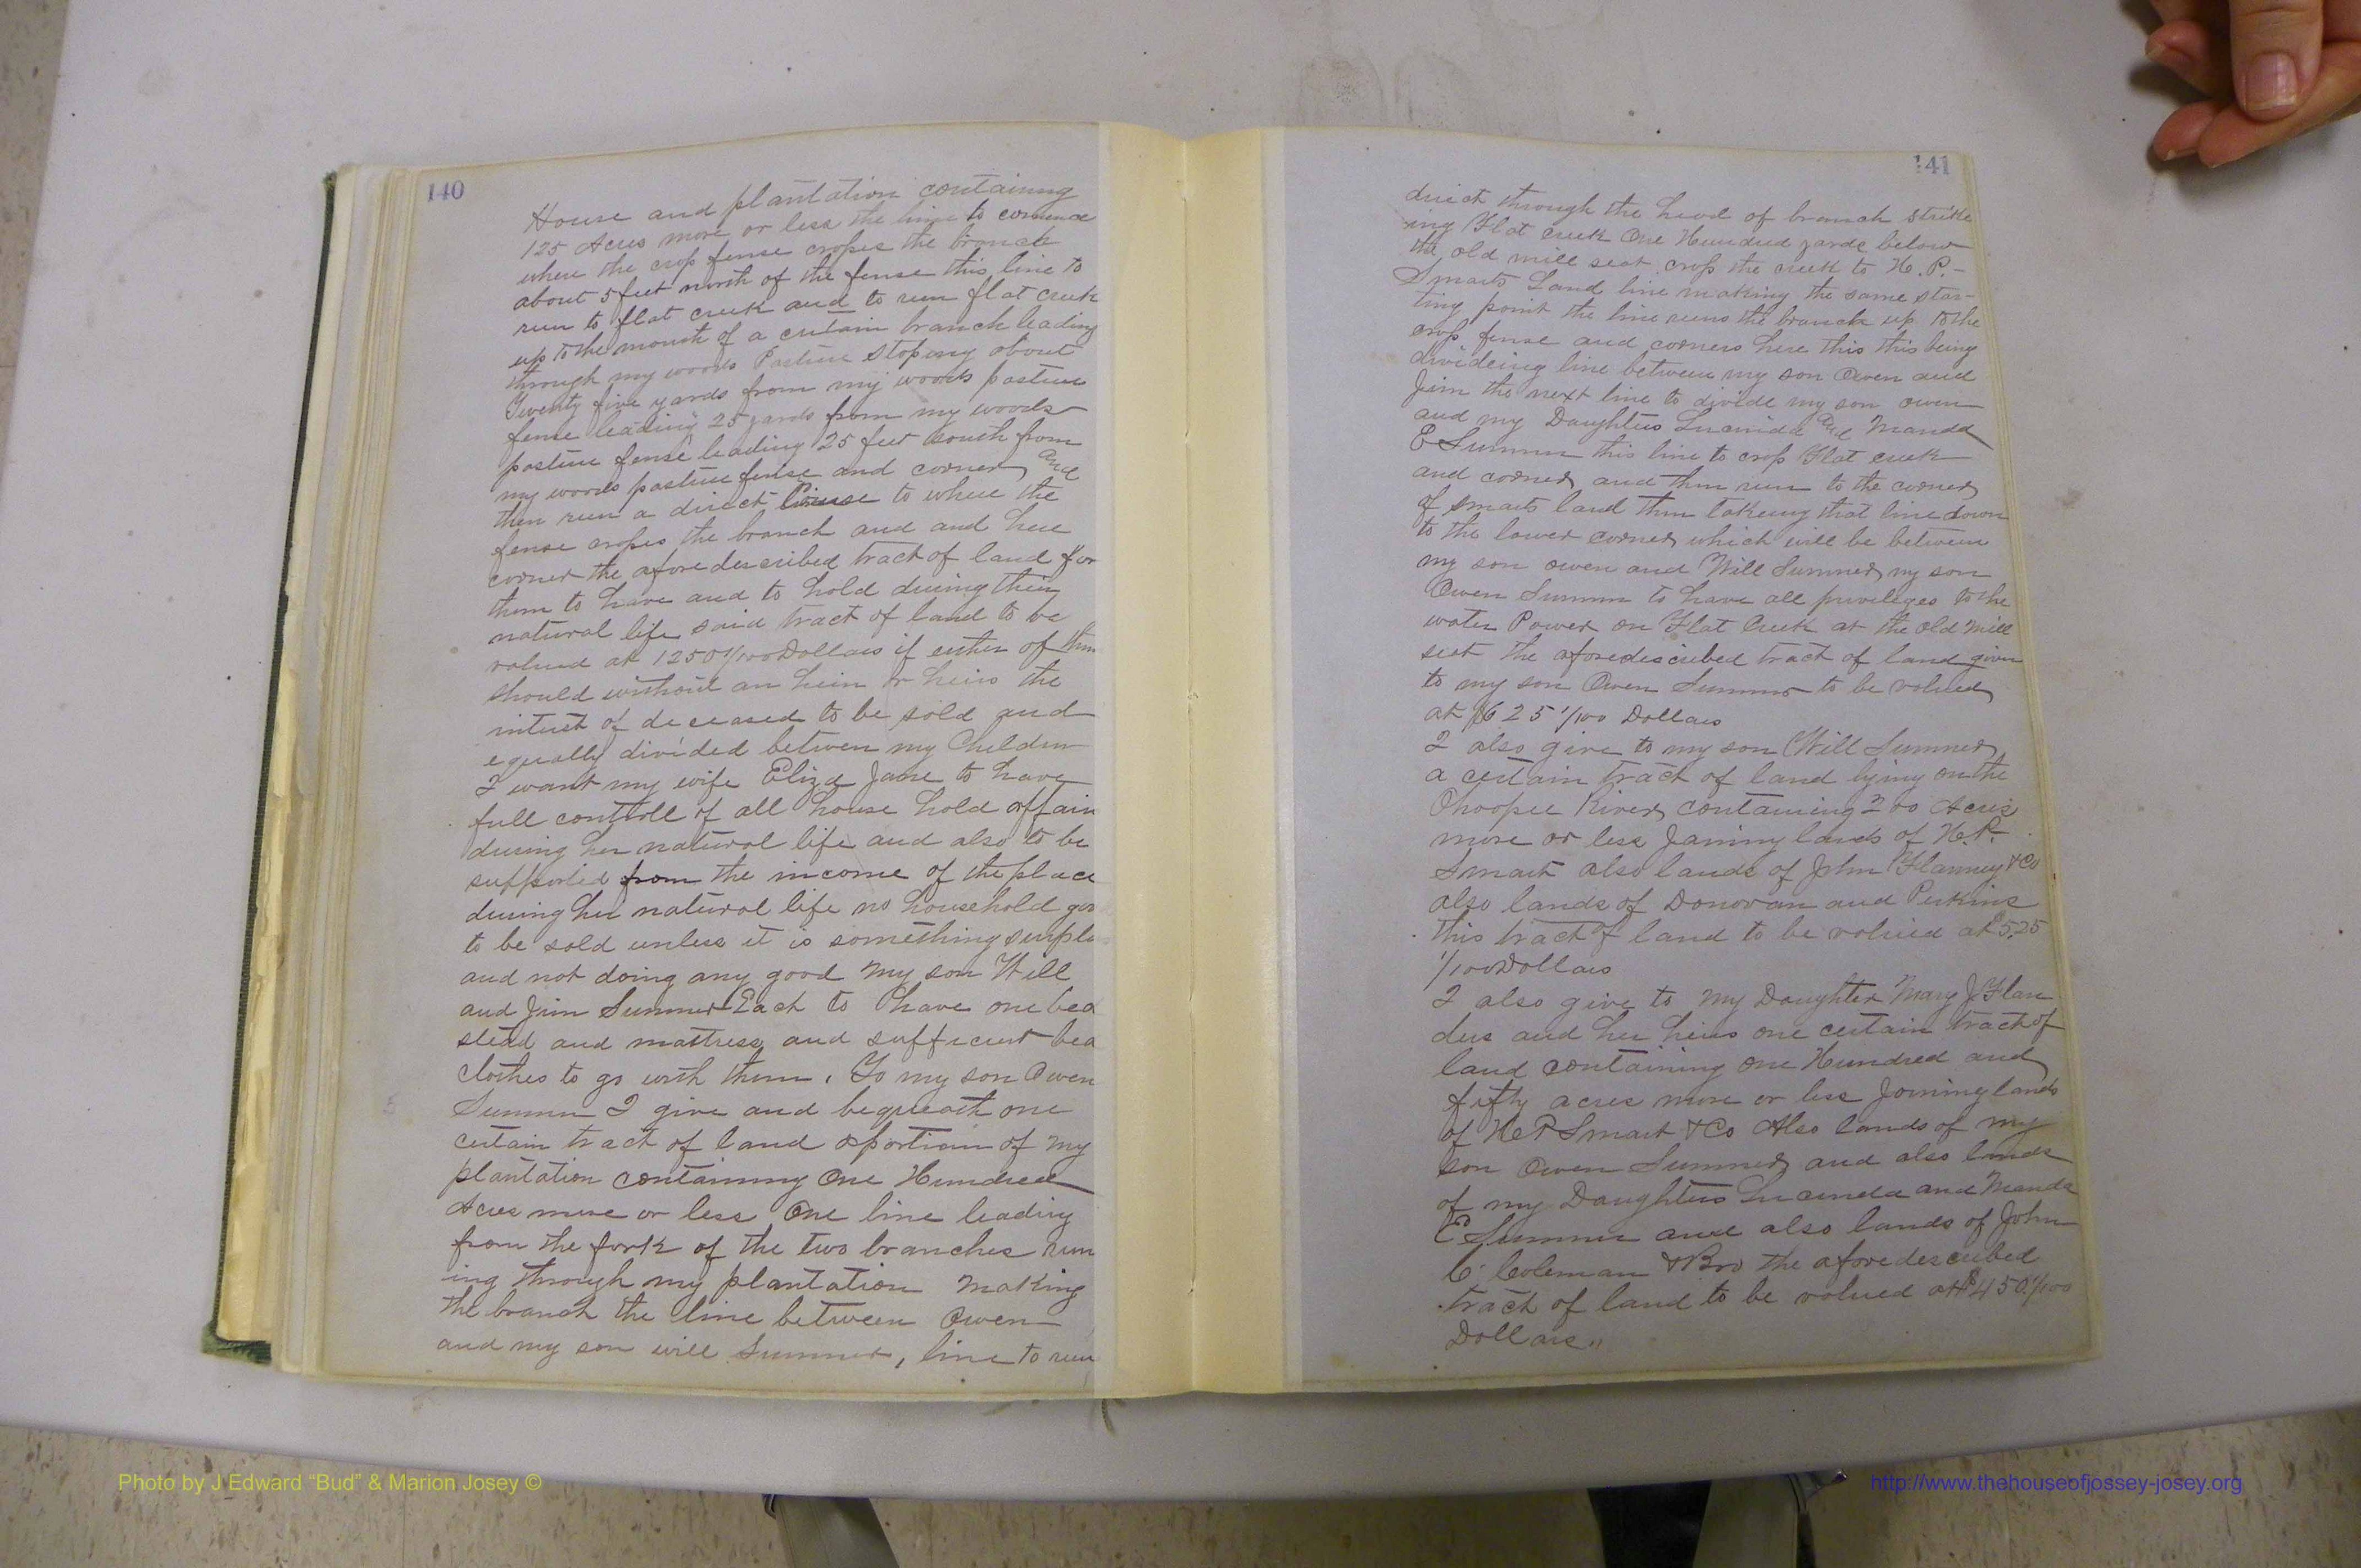 140
House and plantation containing
125 Acres more or less the line to comence
where the crop fense croses the branch
about 5 feet north of the fense this line to
run to flat creek and to run flat creek
up to the mouth of a certain branch leading
through my woods Pasture stoping about
Twenty five yards from my woods pasture
fense leading 25 yards from my woods
pasture fense leading 25 feet south from
my woods pasture fense and corner and
then run a direct line to where the
fense croses the branch and and here
corner the aforedescribed tract of land for
them to have and to hold during their
natural life said tract of land to be
valued at 1250 1/100 Dollars if either of them
should without an hein or heirs the
interest of deceased to be sold and
equally divided between my Children
I want my wife Eliza Jane to have
full controll of all house hold affair
during her natural life and also to be
supported from the income of the place
during her natural life no household
to be sold unless it is something
and not doing any good My son Will
and Jim Sumner Each to have one bed
stead and mattress and sufficient bed
clothes to go with them. To my son Owen
Sumner I give and bequeath one
certain tract of land aportion of my
plantation containing One Hundred
Acres more or less One line leading
from the fork of the two branches run
ing through my plantation making
the branch the line between Owen
and my son will Sumner, line to run
141
direct through the head of branch strike
ing Flat creek One Hundred yards below
the old mill seat crop the creek to H. P.-
Smarts Land line making the same star-
ting point the line runs the branch up to the
crop fense and corners here this this being
divideing line between my son Owen and
Jim the next line to divide my son Owen
and my Daughters Lucinda and Manda
E Sumner this line to crop Flat creek
and corner and then run to the corner
of smarts land then takeing that line down
to the lower corner which will be between
my son owen and Will Sumner my son
Owen Sumner to have all privileges to the
water Power on Flat Creek at the old Mill
seat the aforedescribed tract of land given
to my son Owen Sumner to be valued
at $625 1/100 Dollars
I also give to my son Will Sumner
a certain tract of land lying on the
Ohoopee River containing 200 Acres
more or less Joining lands of H. P.
Smart also lands of John Flannery & Co
also lands of Donovan and Perkins
this tract of land to be valued at $525
1/100 Dollars
I also give to my Daughter Mary J Flan
ders and her heirs one certain tract of
land containing one Hundred and
fifty acres more or less Joining lands
of H P Smart & Co Also lands of my
son Owen Sumner and also lands
of my Daughters Lucinda and Manda
E Sumner and also lands of John
C. Coleman & Bro the aforedescribed
tract of land to be valued at $450 1/100
Dollars"
Photo by J Edward “Bud” & Marion Josey ©
http://www.thehouseofjossey-josey.org